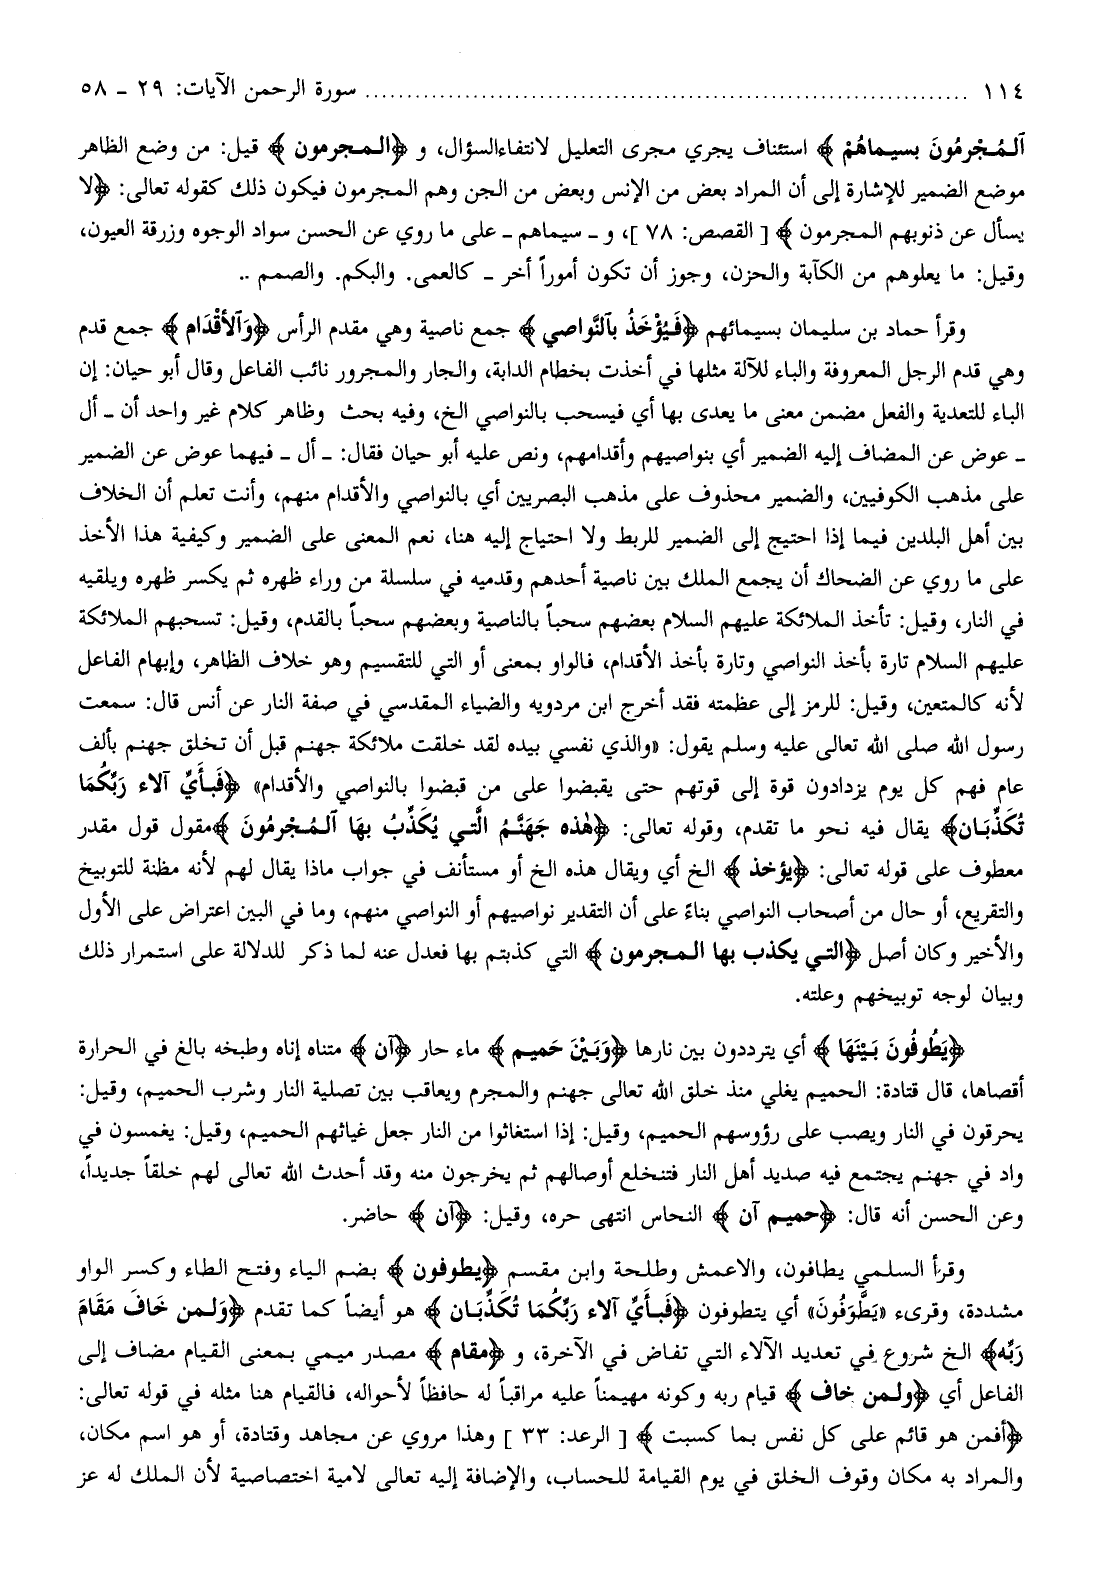 ١١٤ ........................................................................ سورة الرحمن الآيات: ٢٩ ـ ٥٨
ٱلـمُـجْرِمُونَ بسيماهُمْ ﴾ استئناف يجري مجرى التعليل لانتفاءالسؤال، و ﴿الـمـجرمون ﴾ قيل: من وضع الظاهر
موضع الضمير للإشارة إلى أن المراد بعض من الإنس وبعض من الجن وهم المجرمون فيكون ذلك كقوله تعالى: ﴿لا
يسأل عن ذنوبهم المجرمون ﴾ [ القصص: ٧٨ ]، و ـ سيماهم ـ على ما روي عن الحسن سواد الوجوه وزرقة العيون،
وقيل: ما يعلوهم من الكآبة والحزن، وجوز أن تكون أموراً أخر ـ كالعمى. والبكم. والصمم ..
وقرأ حماد بن سليمان بسيمائهم ﴿فَـيُؤْخَذُ بـٱلنَّواصي ﴾ جمع ناصية وهي مقدم الرأس ﴿وَٱلأقْدَام ﴾ جمع قدم
وهي قدم الرجل المعروفة والباء للآلة مثلها في أخذت بخطام الدابة، والجار والمجرور نائب الفاعل وقال أبو حيان: إن
الباء للتعدية والفعل مضمن معنى ما يعدى بها أي فيسحب بالنواصي الخ، وفيه بحث وظاهر كلام غير واحد أن ـ أل
ـ عوض عن المضاف إليه الضمير أي بنواصيهم وأقدامهم، ونص عليه أبو حيان فقال: ـ أل ـ فيهما عوض عن الضمير
على مذهب الكوفيين، والضمير محذوف على مذهب البصريين أي بالنواصي والأقدام منهم، وأنت تعلم أن الخلاف
بين أهل البلدين فيما إذا احتيج إلى الضمير للربط ولا احتياج إليه هنا، نعم المعنى على الضمير وكيفية هذا الأخذ
على ما روي عن الضحاك أن يجمع الملك بين ناصية أحدهم وقدميه في سلسلة من وراء ظهره ثم يكسر ظهره ويلقيه
في النار، وقيل: تأخذ الملائكة عليهم السلام بعضهم سحباً بالناصية وبعضهم سحباً بالقدم، وقيل: تسحبهم الملائكة
عليهم السلام تارة بأخذ النواصي وتارة بأخذ الأقدام، فالواو بمعنى أو التي للتقسيم وهو خلاف الظاهر، وإبهام الفاعل
لأنه كالمتعين، وقيل: للرمز إلى عظمته فقد أخرج ابن مردويه والضياء المقدسي في صفة النار عن أنس قال: سمعت
رسول الله صلى الله تعالى عليه وسلم يقول: «والذي نفسي بيده لقد خلقت ملائكة جهنم قبل أن تخلق جهنم بألف
عام فهم كل يوم يزدادون قوة إلى قوتهم حتى يقبضوا على من قبضوا بالنواصي والأقدام» ﴿فَبـأَيِّ آلاء رَبِّكُمَا
تُكَذِّبَـان﴾ يقال فيه نحو ما تقدم، وقوله تعالى: ﴿هٰذه جَهَنَّـمُ الَّتـي يُكَذِّبُ بهَا ٱلـمُـجْرِمُونَ ﴾مقول قول مقدر
معطوف على قوله تعالى: ﴿يؤخذ ﴾ الخ أي ويقال هذه الخ أو مستأنف في جواب ماذا يقال لهم لأنه مظنة للتوبيخ
والتقريع، أو حال من أصحاب النواصي بناءً على أن التقدير نواصيهم أو النواصي منهم، وما في البين اعتراض على الأول
والأخير وكان أصل ﴿التـي يكذب بها الـمـجرمون ﴾ التي كذبتم بها فعدل عنه لما ذكر للدلالة على استمرار ذلك
وبيان لوجه توبيخهم وعلته.
﴿يَطُوفُونَ بَـيْنَهَا ﴾ أي يترددون بين نارها ﴿وَبَيْنَ حَميـم ﴾ ماء حار ﴿آن ﴾ متناه إناه وطبخه بالغ في الحرارة
أقصاها، قال قتادة: الحميم يغلي منذ خلق الله تعالى جهنم والمجرم ويعاقب بين تصلية النار وشرب الحميم، وقيل:
يحرقون في النار ويصب على رؤوسهم الحميم، وقيل: إذا استغاثوا من النار جعل غياثهم الحميم، وقيل: يغمسون في
واد في جهنم يجتمع فيه صديد أهل النار فتنخلع أوصالهم ثم يخرجون منه وقد أحدث الله تعالى لهم خلقاً جديداً،
وعن الحسن أنه قال: ﴿حميـم آن ﴾ النحاس انتهى حره، وقيل: ﴿آن ﴾ حاضر.
وقرأ السلمي يطافون، والاعمش وطلحة وابن مقسم ﴿يطوفون ﴾ بضم الياء وفتح الطاء وكسر الواو
مشددة، وقرىء «يَطَّوَفُونَ» أي يتطوفون ﴿فَبـأَيِّ آلاء رَبِّكُمَا تُكَذِّبَـان ﴾ هو أيضاً كما تقدم ﴿وَلـمن خَافَ مَقَامَ
رَبِّه﴾ الخ شروع في تعديد الآلاء التي تفاض في الآخرة، و ﴿مقام ﴾ مصدر ميمي بمعنى القيام مضاف إلى
الفاعل أي ﴿ولـمن خاف ﴾ قيام ربه وكونه مهيمناً عليه مراقباً له حافظاً لأحواله، فالقيام هنا مثله في قوله تعالى:
﴿أفمن هو قائم على كل نفس بما كسبت ﴾ [ الرعد: ٣٣ ] وهذا مروي عن مجاهد وقتادة، أو هو اسم مكان،
والمراد به مكان وقوف الخلق في يوم القيامة للحساب، والإضافة إليه تعالى لامية اختصاصية لأن الملك له عز